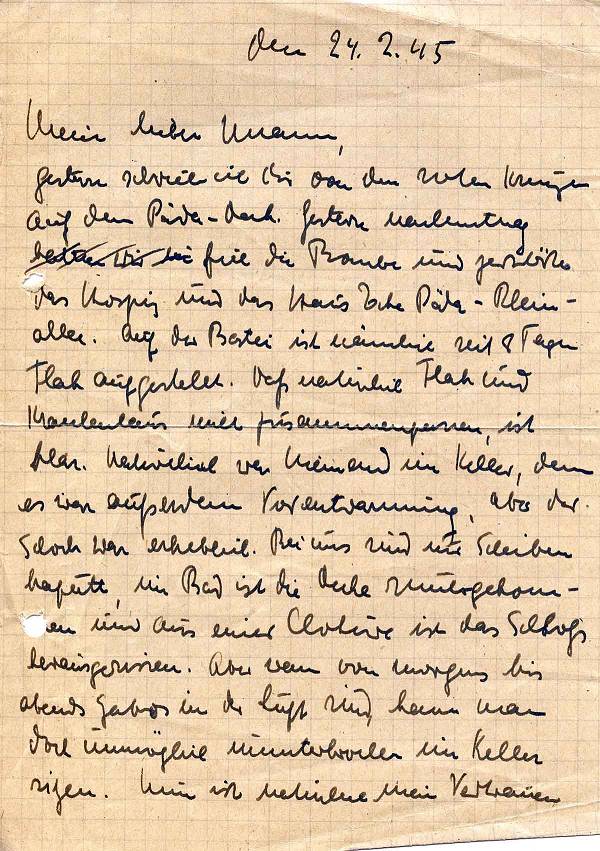 den 24. 2. 45
Mein lieber Mann,
gestern schrieb ich Dir von dem roten Kreuz
auf dem Päda-Dach. Gestern nachmittag
fiel die Bombe und zerstörte
das Hospiz und das Haus Ecke Päda-Rhein-
allee. Auf der Bastei ist nämlich seit 8 Tagen
Flak aufgestellt. Daß natürlich Flak und
Krankenhaus nicht zusammenpassen, ist
klar. Natürlich war niemand im Keller, denn
es war außerdem Vorentwarnung, aber der
Schock war erheblich. Bei uns sind nur Scheiben
kaputt, im Bad ist die Decke runtergekom-
men und aus einer Clotüre ist das Schloß
herausgerissen. Aber wenn von morgens bis
abends Jabos in der Luft sind, kann man
doch unmöglich ununterbrochen im Keller
sitzen. Nun ist natürlich mein Vertrauen